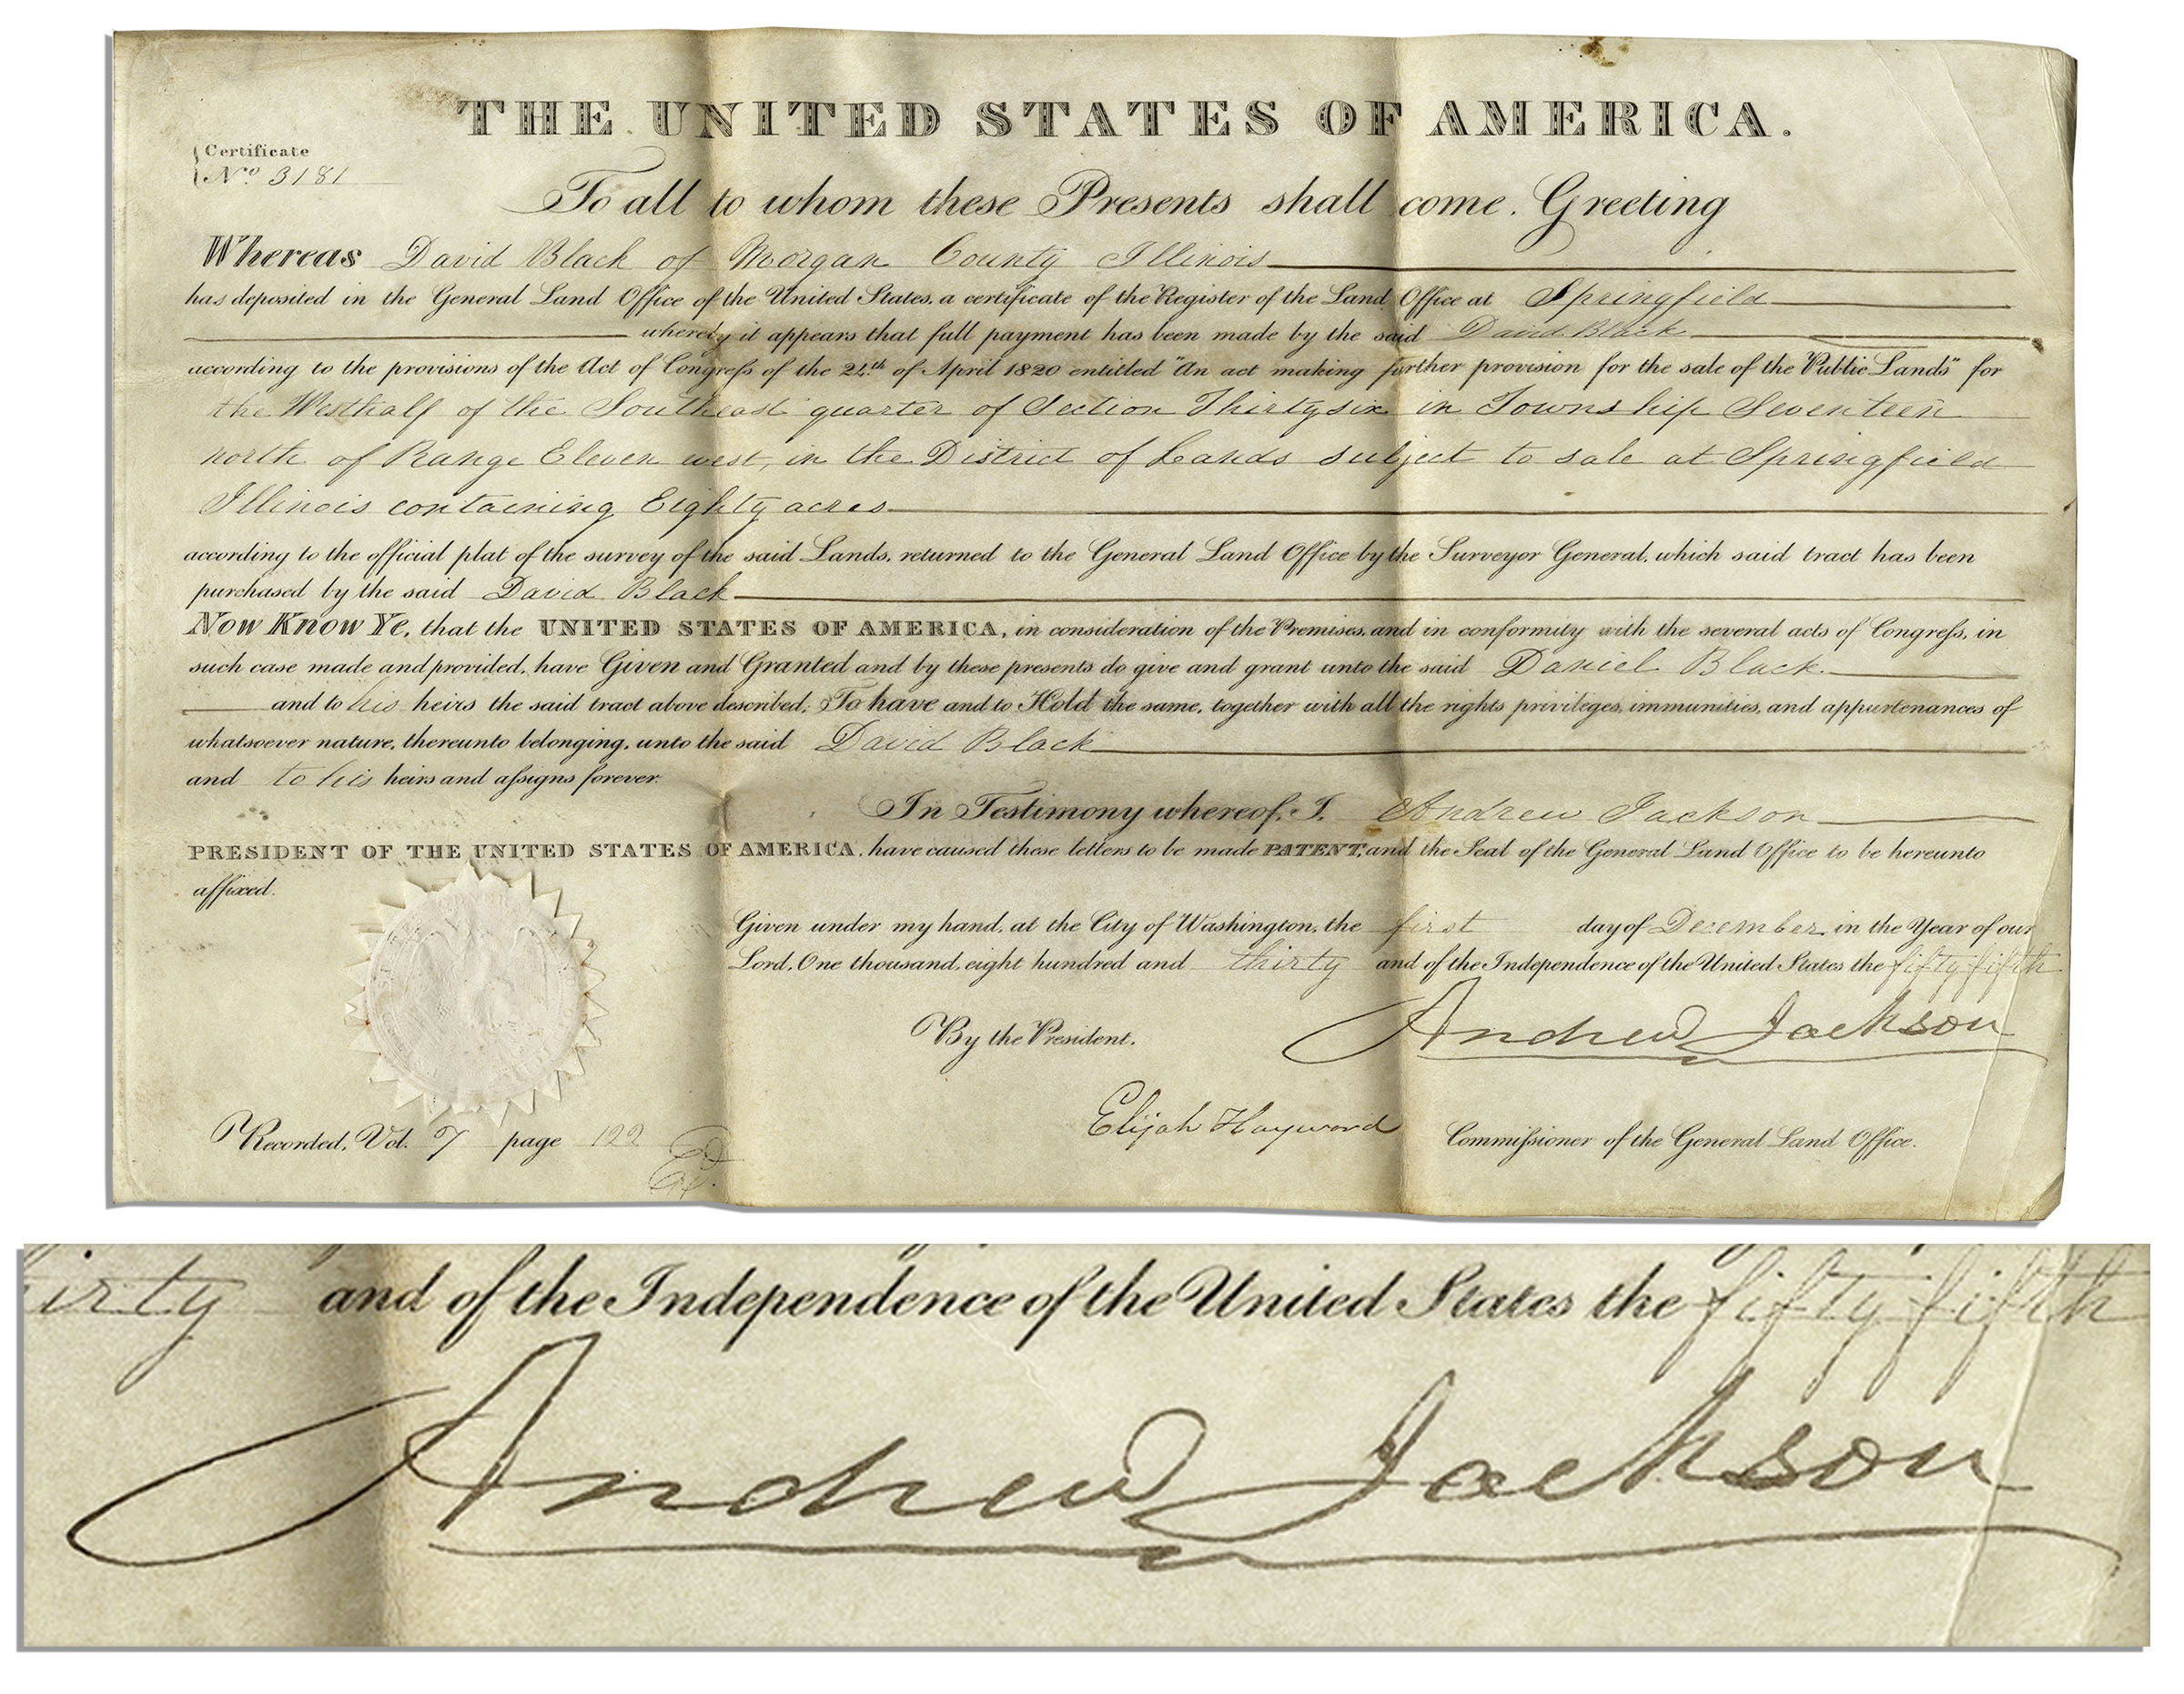 THE UNITED STATES OF AMERICA.
Certificate
No. 3181
To all to whom these Presents shall come, Greeting
Whereas David Black of Morgan County Illinois
has deposited in the General Land Office of the United States, a certificate of the Register of the Land Office at Springfield
whereby it appears that full payment has been made by the said David Black
according to the provisions of the Act of Congress of the 24th of April 1820 entitled "An act making further provision for the sale of the Public Lands" for
the West half of the South east quarter of Section Thirty six in Township Seventeen
north of Range Eleven west, in the District of Lands subject to sale at Springfield
Illinois containing Eighty acres
according to the official plat of the survey of the said Lands, returned to the General Land Office by the Surveyor General, which said tract has been
purchased by the said David Black
Now Know Ye, that the UNITED STATES OF AMERICA, in consideration of the Premises, and in conformity with the several acts of Congress, in
such case made and provided, have Given and Granted and by these presents do give and grant unto the said Daniel Black
and to his heirs the said tract above described; To have and to Hold the same, together with all the rights privileges, immunities, and appurtenances of
whatsoever nature, thereunto belonging, unto the said David Black
and to his heirs and assigns forever.
In Testimony whereof, I, Andrew Jackson
PRESIDENT OF THE UNITED STATES OF AMERICA, have caused these letters to be made PATENT, and the Seal of the General Land Office to be hereunto
affixed.
Given under my hand, at the City of Washington, the first day of December in the Year of our
Lord, One thousand, eight hundred and thirty and of the Independence of the United States the fifty fifth
Andrew Jackson
By the President.
Elijah Hayward Commissioner of the General Land Office.
Recorded, Vol. 7 page 122
irty and of the Independence of the United States the fifty fifth
Andrew Jackson